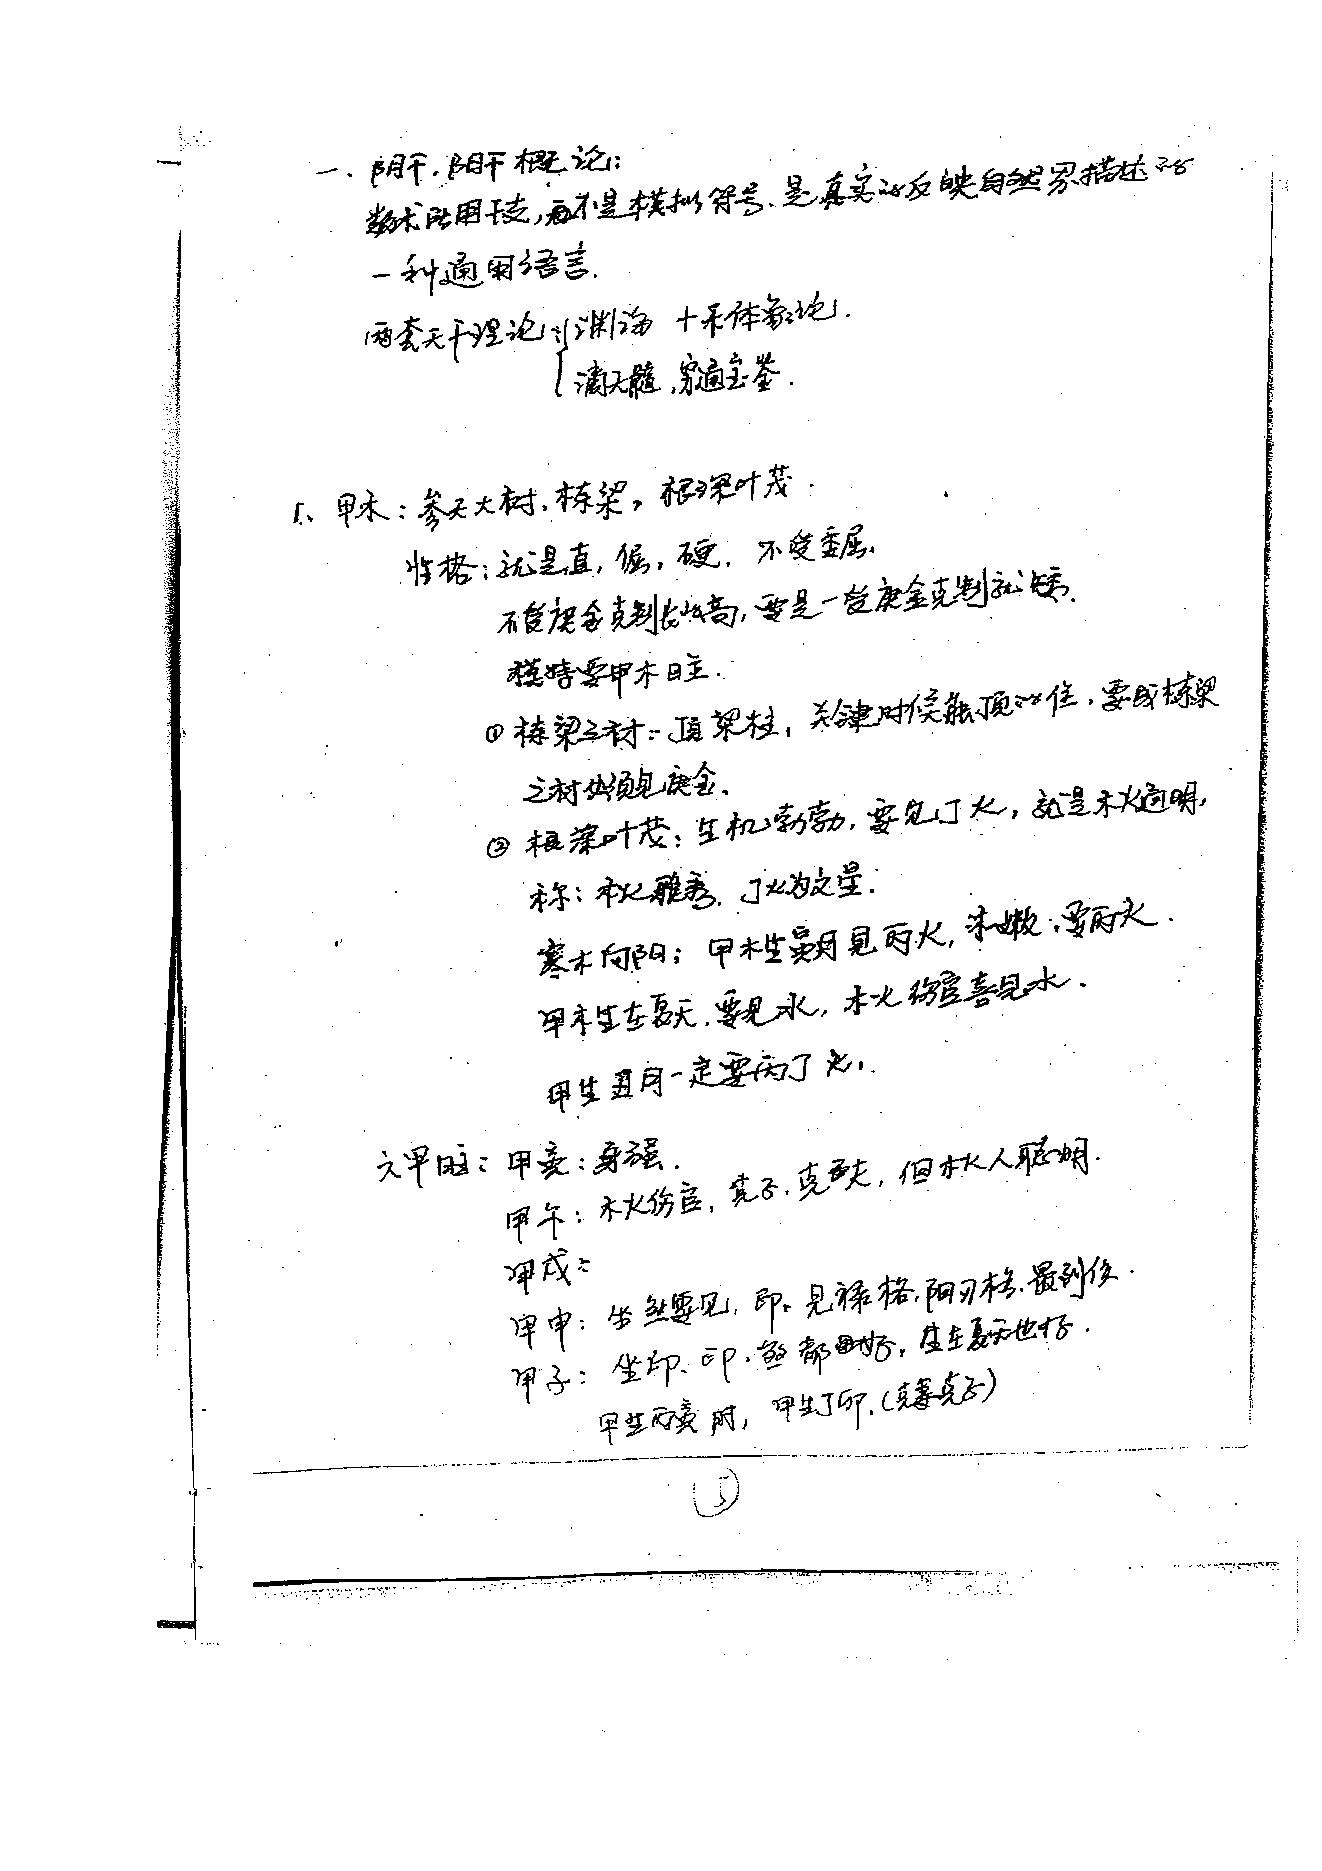 一、阴干、阳干概论:
数术所用干支,而不是模拟符号、是真实的反映自然界描述的
一种通用语言.
两套天干理论:渊海 十天体象论.
滴天髓,穷通宝鉴.
1、甲木:参天大树、栋梁,根深叶茂.
性格:就是直,倔,硬,不受委屈.
不受庚金克制长得高,要是一受庚金克制就矮.
模特要甲木日主.
①栋梁之材:顶梁柱,关键时候能顶的住,要成栋梁
之材必须见庚金.
②根深叶茂:生机勃勃,要见丁火,就是木火通明,
称:木火雅秀,丁火为文星.
寒木向阳:甲木生寅月见丙火,木嫩,要丙火.
甲木生在夏天,要见水,木火伤官喜见水.
甲生丑月一定要丙丁火.
六甲日:甲亥:身强.
甲午:木火伤官,克子,克夫,但木火人聪明.
甲戌:
甲申:坐煞要见印,见禄格,阳刃格,最到位.
甲子:坐印、印、煞都好,生在夏天也好.
甲生丙寅时,甲生丁卯,(克妻克子)
⑤